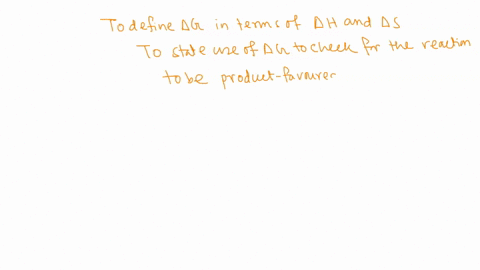 To define ΔG in terms of ΔH and ΔS
To state use of ΔG to check for the reaction
to be product-favoure